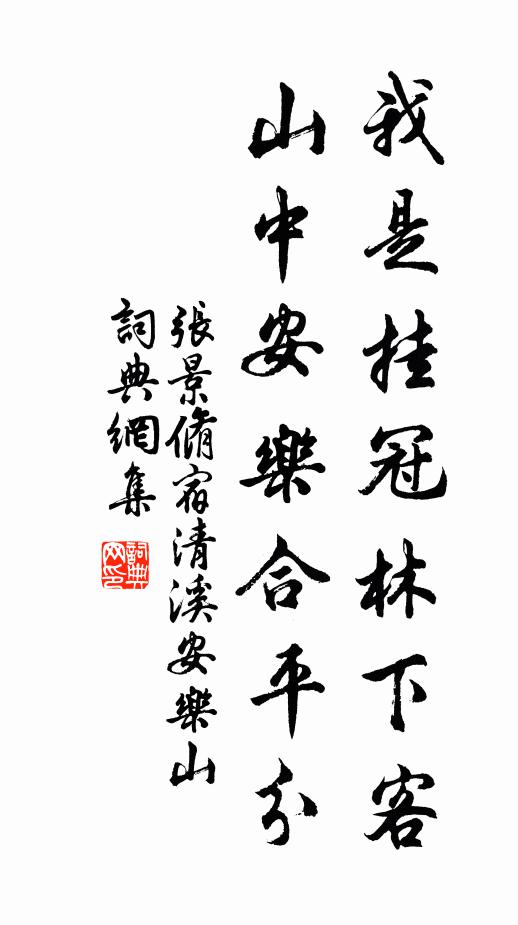 我是挂冠林下客
山中安樂合平分
張景脩宿清溪安樂山
詞典網集
詞典網印